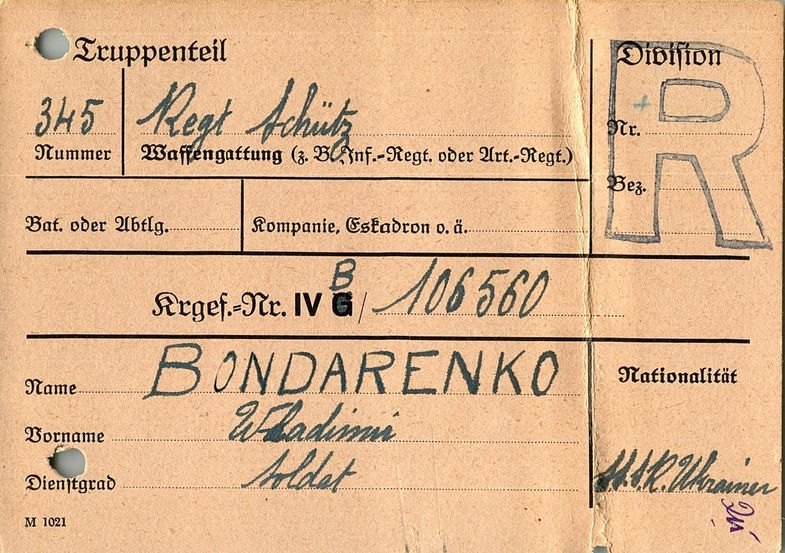 Truppenteil
Division
R
345 Regt Schütz
Nr.
Nummer Waffengattung (z. B. Inf.-Regt. oder Art.-Regt.)
Bez.
Bat. oder Abtlg. Kompanie, Eskadron o. ä.
B
Krgef.-Nr. IV G/ 106560
Name BONDARENKO
Nationalität
Vorname Wladimir
Dienstgrad Soldat
R. Ukrainer
M 1021